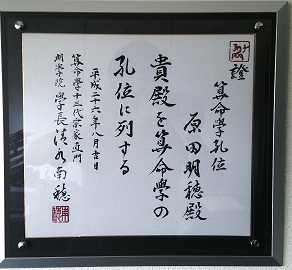 證
算命學孔位
原田明穂殿
貴殿を算命學の
孔位に列する
平成二十六年八月吉日
算命學十三代宗家直門
明学院 学長 清水南穂